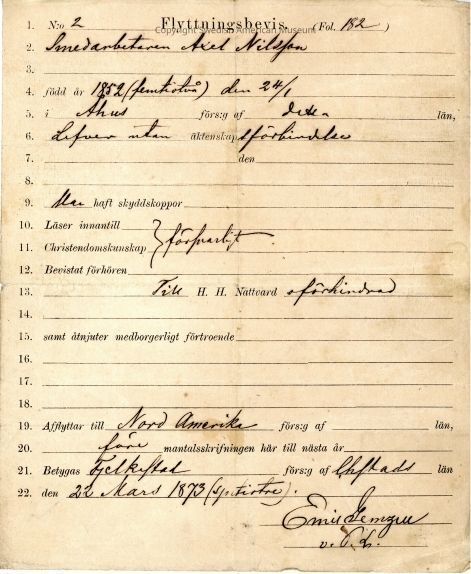 N:o 2 Flyttningsbevis. (Fol. 182)
Copyright Swedish American Museum
1.
2. Smedarbetaren Axel Nilsson
3.
4. född år 1852 (femtiotvå) den 24/1
5. i Åhus förs:g af län,
6. Lefver utan äktenskapsförbindelse
7. den
8.
9. Har haft skyddskoppor
10. Läser innantill
11. Christendomskunskap } försvarligt
12. Bevistat förhören
13. Till H. H. Nattvard oförhindrad
14.
15. samt åtnjuter medborgerligt förtroende
16.
17.
18.
19. Afflyttar till Nord Amerika förs:g af län,
20. före mantalsskrifningen här till nästa år
21. Betygas Fjelkestad förs:g af län
22. den 22 Mars 1873
Emil
v. P. L.